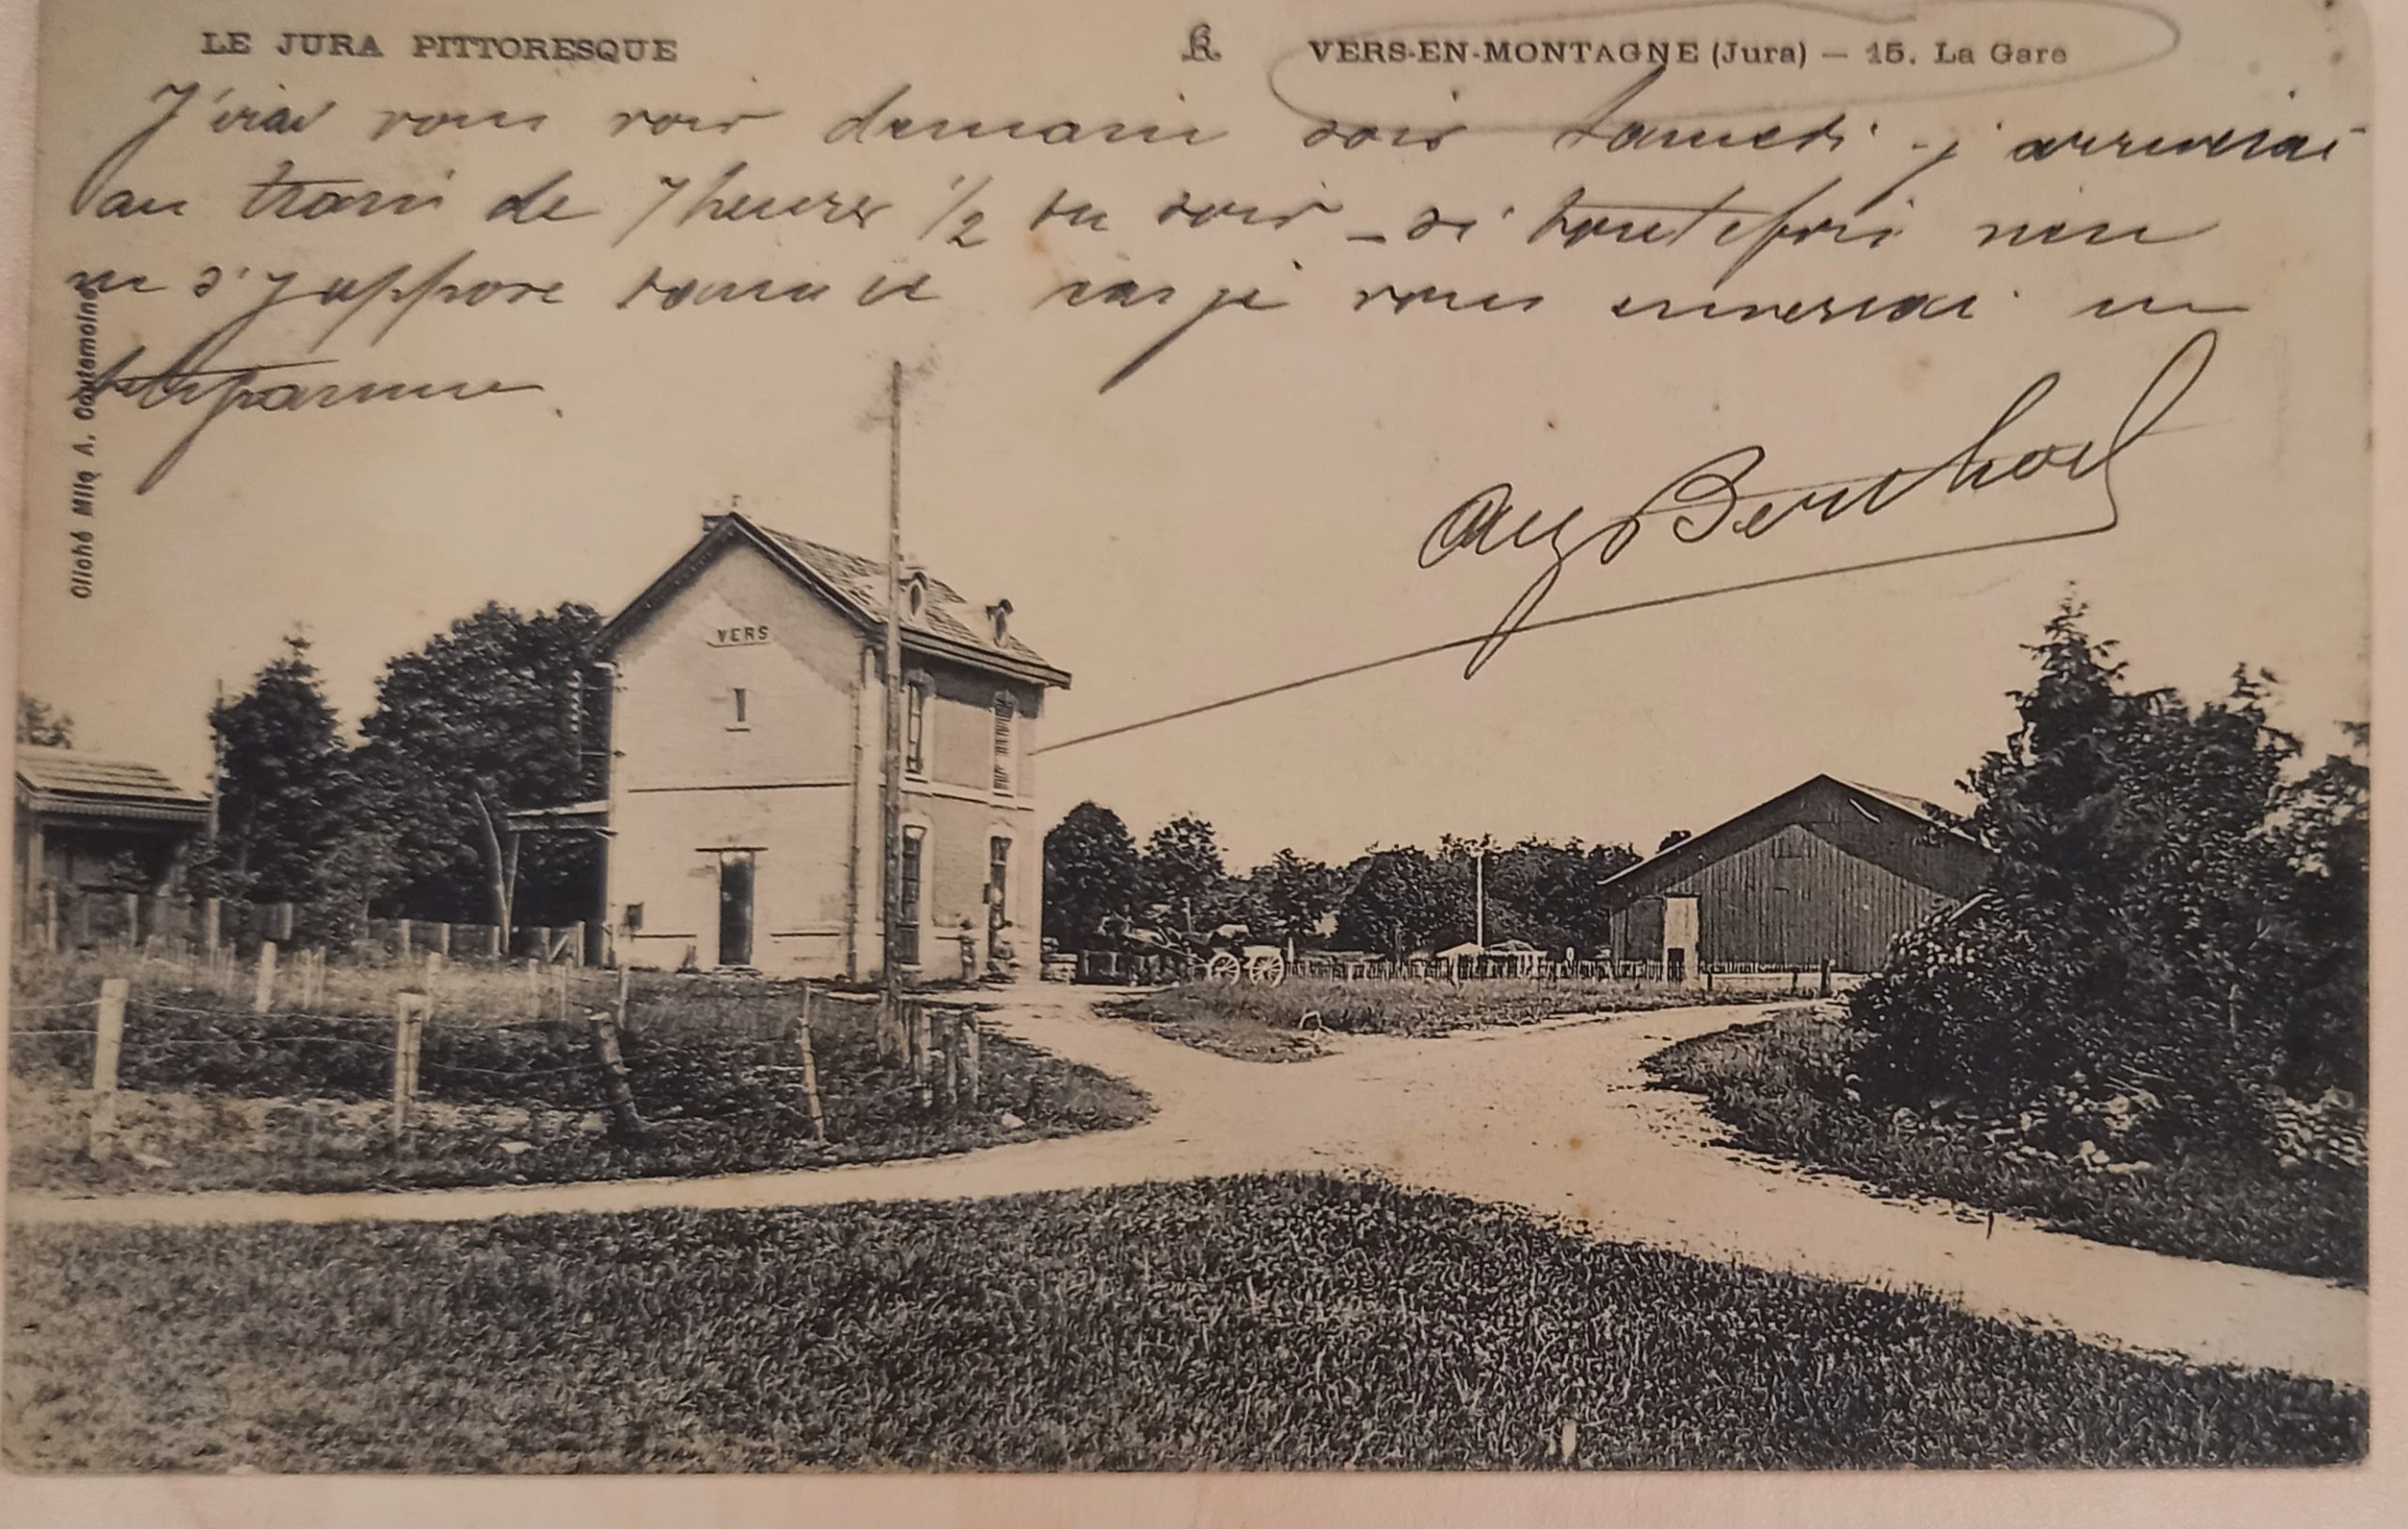 LE JURA PITTORESQUE
VERS-EN-MONTAGNE (Jura) — 15. La Gare
J'irai vous voir demain soir Samedi - j'arriverai
au train de 7 heures 1/2 du soir - si toutefois rien
ne s'y oppose dans ce cas je vous enverrai un
Cliché Mlle A. Coutemoine
Aug Berthod
VERS